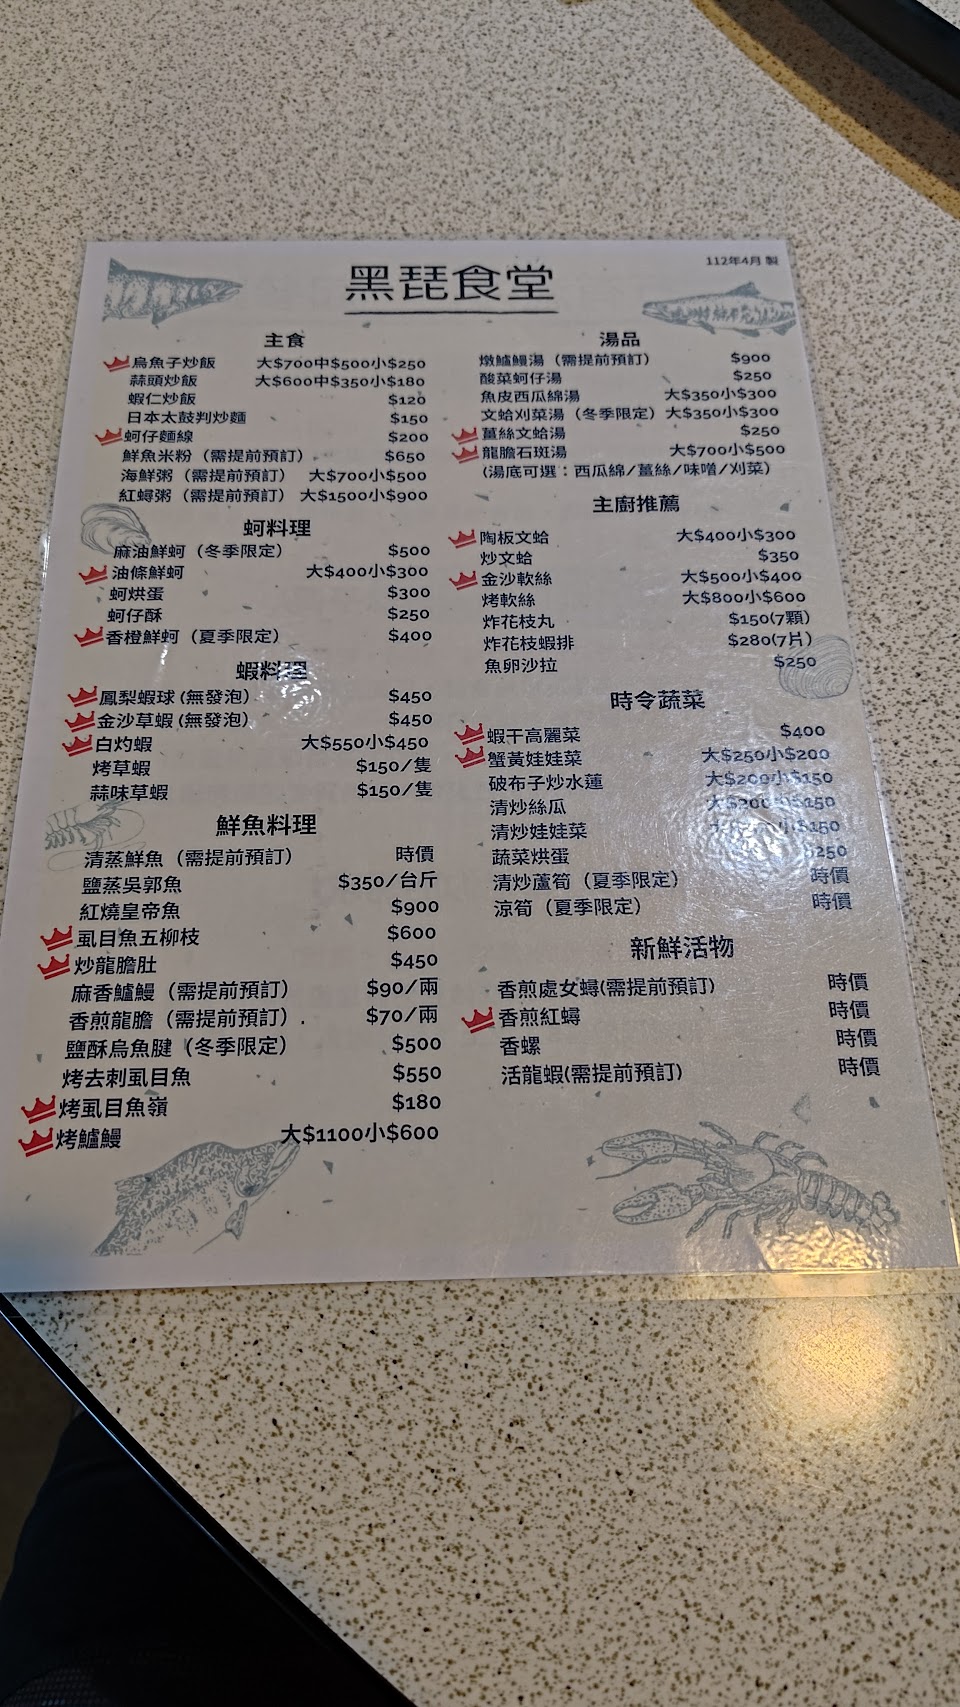 黑琵食堂
112年4月 製
主食
烏魚子炒飯 大$700中$500小$250
蒜頭炒飯 大$600中$350小$180
蝦仁炒飯 $120
日本太鼓判炒麵 $150
蚵仔麵線 $200
鮮魚米粉（需提前預訂） $650
海鮮粥（需提前預訂） 大$700小$500
紅蟳粥（需提前預訂） 大$1500小$900
蚵料理
麻油鮮蚵（冬季限定） $500
油條鮮蚵 大$400小$300
蚵烘蛋 $300
蚵仔酥 $250
香橙鮮蚵（夏季限定） $400
蝦料理
鳳梨蝦球(無發泡) $450
金沙草蝦(無發泡) $450
白灼蝦 大$550小$450
烤草蝦 $150/隻
蒜味草蝦 $150/隻
鮮魚料理
清蒸鮮魚（需提前預訂） 時價
鹽蒸吳郭魚 $350/台斤
紅燒皇帝魚 $900
虱目魚五柳枝 $600
炒龍膽肚 $450
麻香鱸鰻（需提前預訂） $90/兩
香煎龍膽（需提前預訂）. $70/兩
鹽酥烏魚腱（冬季限定） $500
烤去刺虱目魚 $550
烤虱目魚嶺 $180
烤鱸鰻 大$1100小$600
湯品
燉鱸鰻湯（需提前預訂） $900
酸菜蚵仔湯 $250
魚皮西瓜綿湯 大$350小$300
文蛤刈菜湯（冬季限定） 大$350小$300
薑絲文蛤湯 $250
龍膽石斑湯 大$700小$500
(湯底可選：西瓜綿/薑絲/味噌/刈菜)
主廚推薦
陶板文蛤 大$400小$300
炒文蛤 $350
金沙軟絲 大$500小$400
烤軟絲 大$800小$600
炸花枝丸 $150(7顆)
炸花枝蝦排 $280(7片)
魚卵沙拉 $250
時令蔬菜
蝦干高麗菜 $400
蟹黃娃娃菜 大$250小$200
破布子炒水蓮 大$200小$150
清炒絲瓜 大$200小$150
清炒娃娃菜 $150
蔬菜烘蛋 $250
清炒蘆筍（夏季限定） 時價
涼筍（夏季限定） 時價
新鮮活物
香煎處女蟳(需提前預訂) 時價
香煎紅蟳 時價
香螺 時價
活龍蝦(需提前預訂) 時價